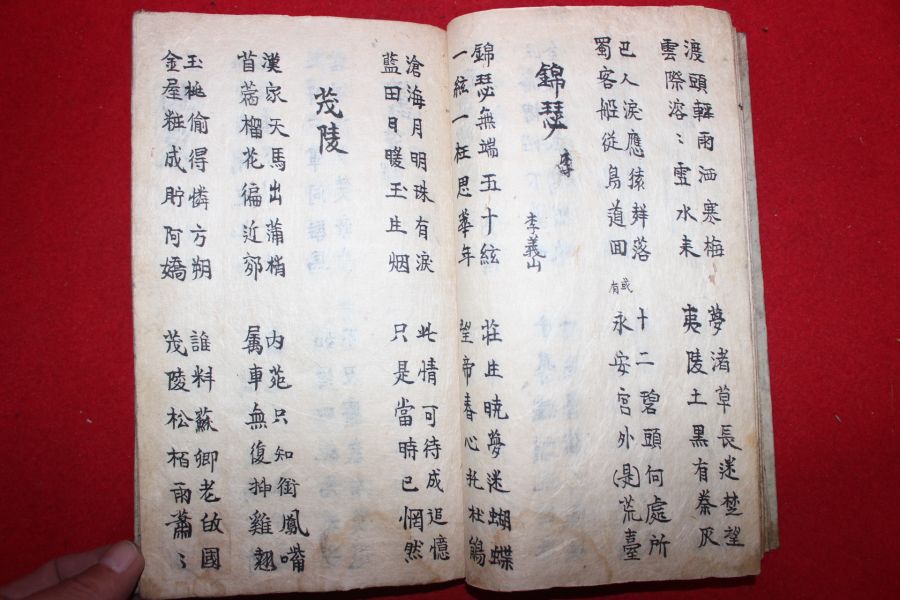 渡頭輕雨洒寒梅
雲際溶〻雪水来
夢渚草長迷楚望
夷陵土黒有秦灰
巴人淚應猿聲落
蜀客船從鳥道回
或有
十二碧頭何處所
永安宮外(是)荒臺
錦瑟
李義山
錦瑟無端五十絃
一絃一柱思華年
莊生暁夢迷蝴蝶
望帝春心托杜鵑
滄海月明珠有淚
藍田日暖玉生烟
此情可待成追憶
只是當時已惘然
茂陵
漢家天馬出蒲梢
苜蓿榴花徧近郊
内苑只知銜鳳嘴
属車無復挿雞翹
玉桃偷得憐方朔
金屋粧成貯阿嬌
誰料蘇卿老故國
茂陵松栢雨蕭〻